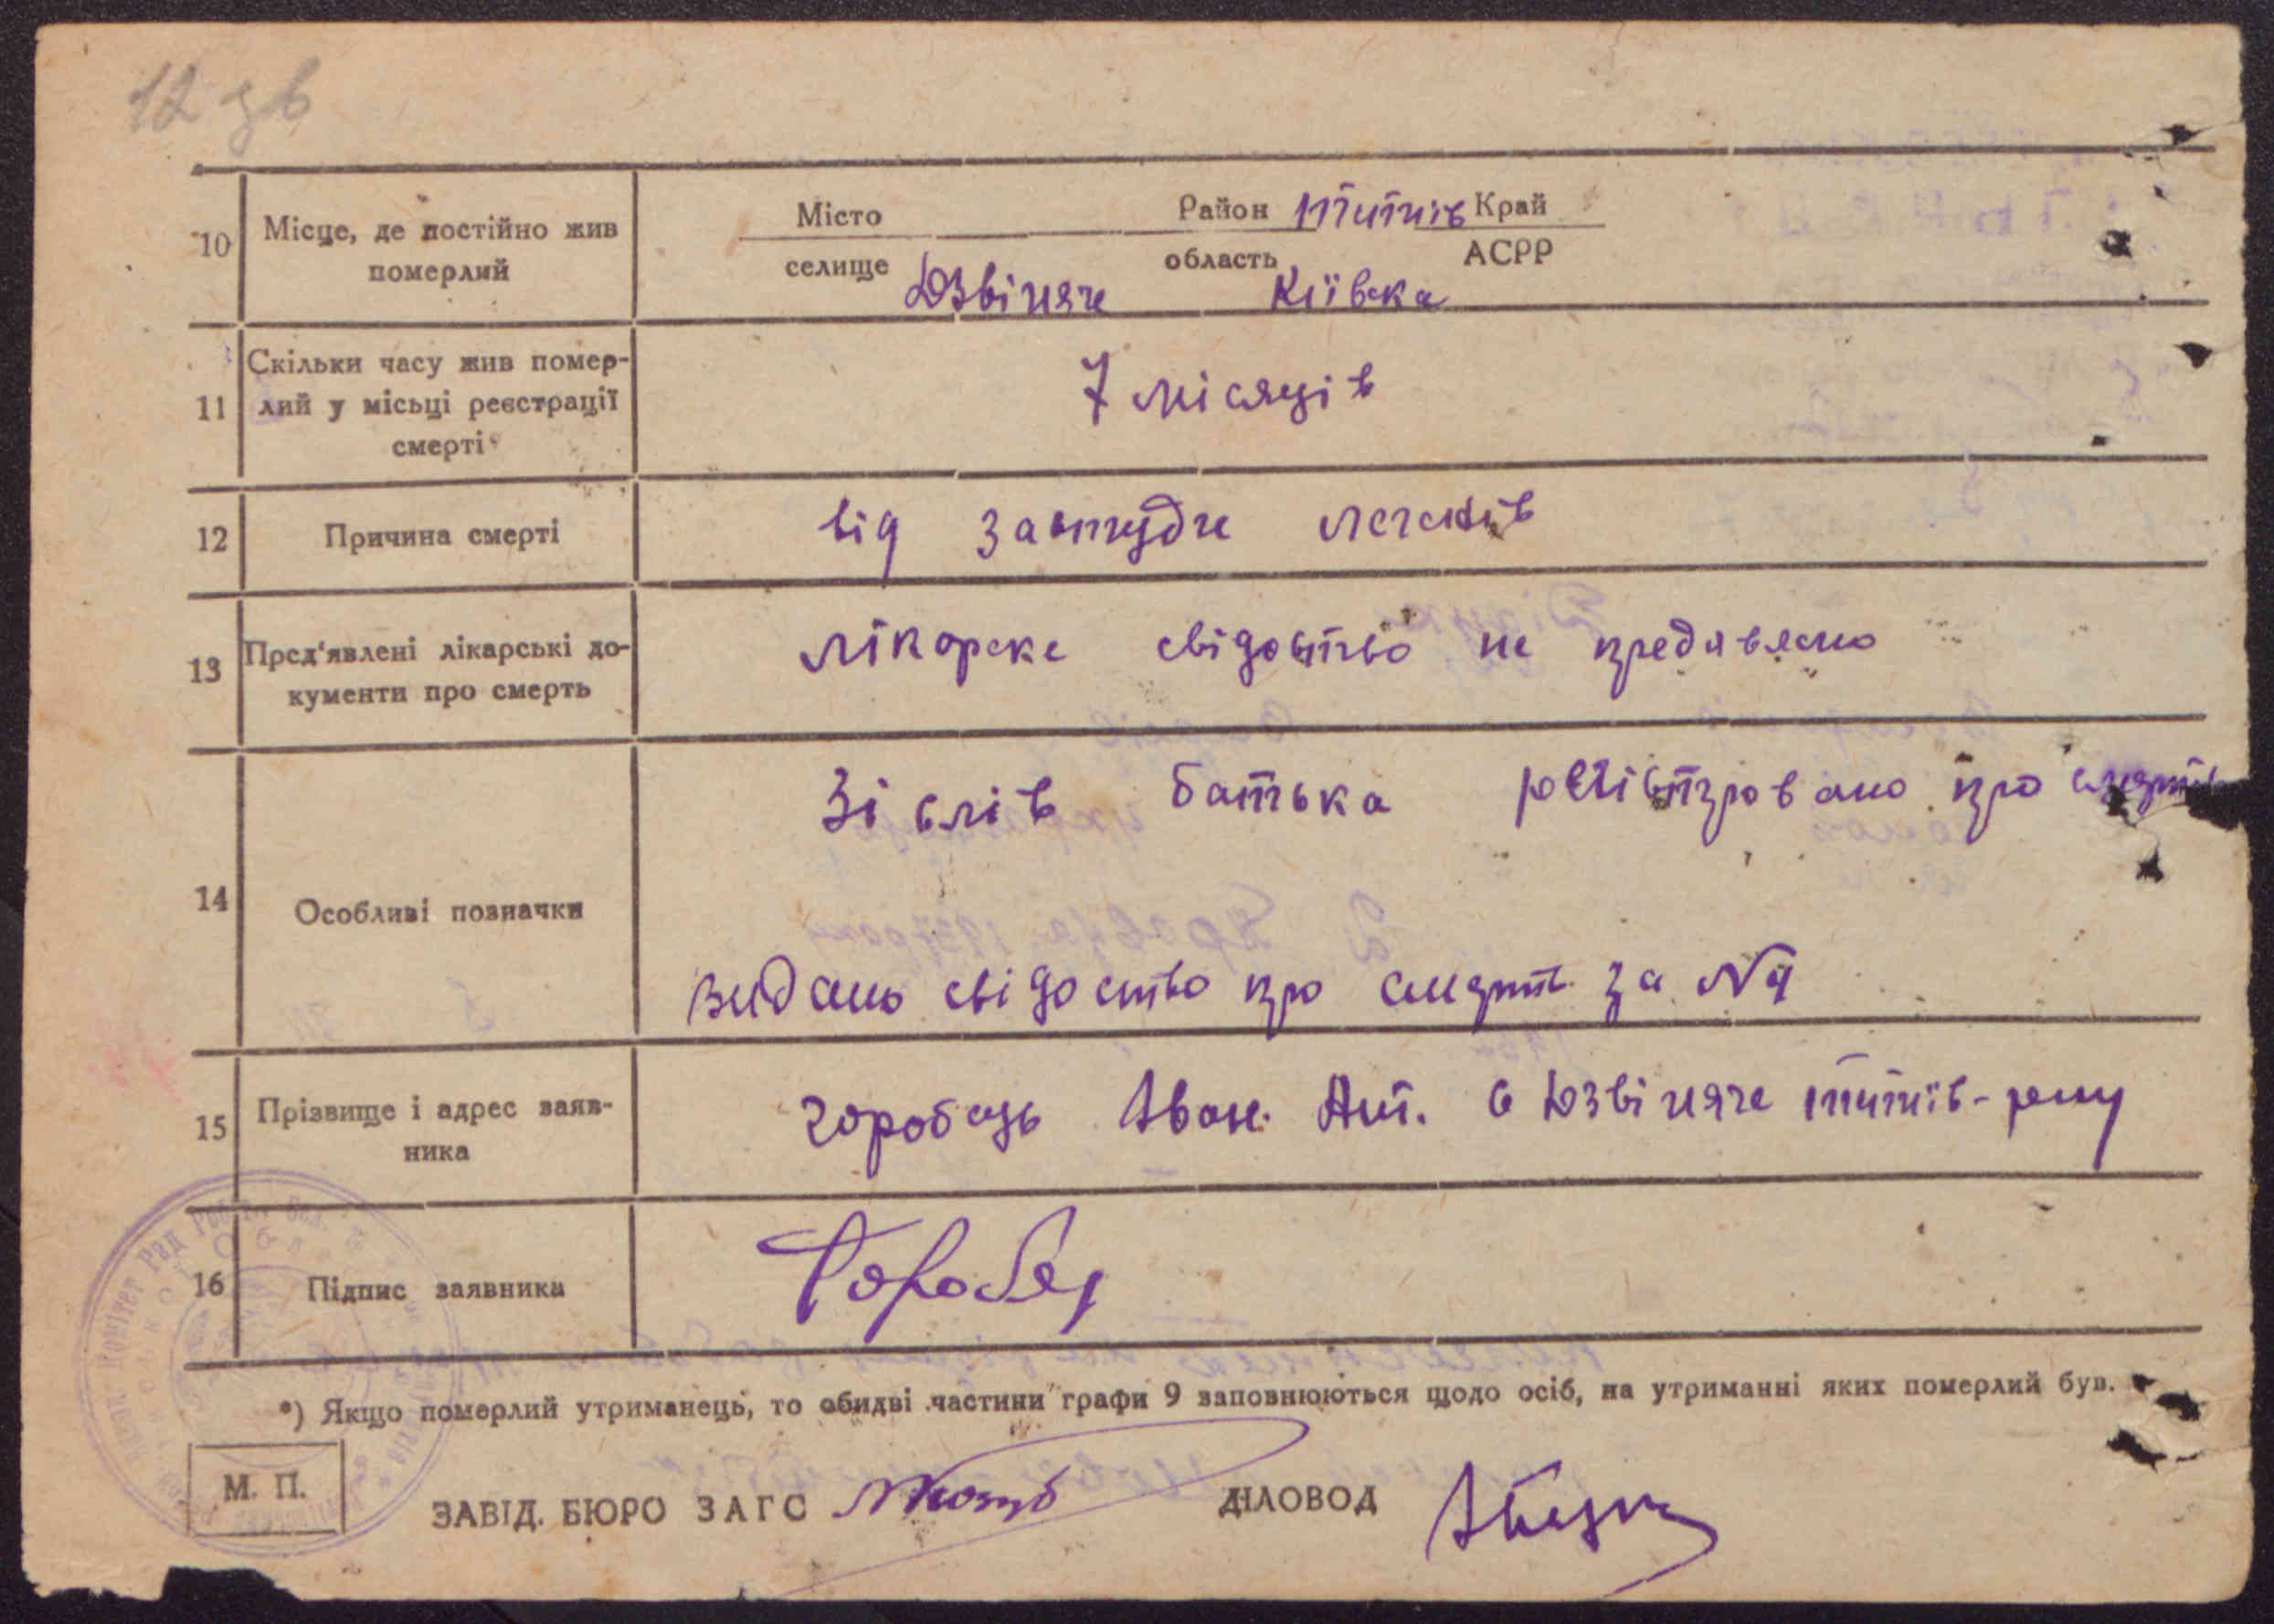 12 зв
10 Місце, де постійно жив померлий
Місто Район Титиїв Край
селище Дзвіняче область Київска АСРР
11 Скільки часу жив помер-
лий у місьці реєстрації
смерті
7 місяців
12 Причина смерті
від завтудзе легенів
13 Пред'явлені лікарські до-
кументи про смерть
лікарске свідоцтво не предявлено
14 Особливі позначки
Зі слів батька
про смерть
видано свідоство про смерть за №
15 Прізвище і адрес заяв-
ника
горобець Іван Ант. с Дзвіняче титиїв-рну
16 Підпис заявника
Горобец
*) Якщо померлий утриманець, то обидві частини графи 9 заповнюються щодо осіб, на утриманні яких померлий був.
М. П.
ЗАВІД. БЮРО ЗАГС ДІЛОВОД